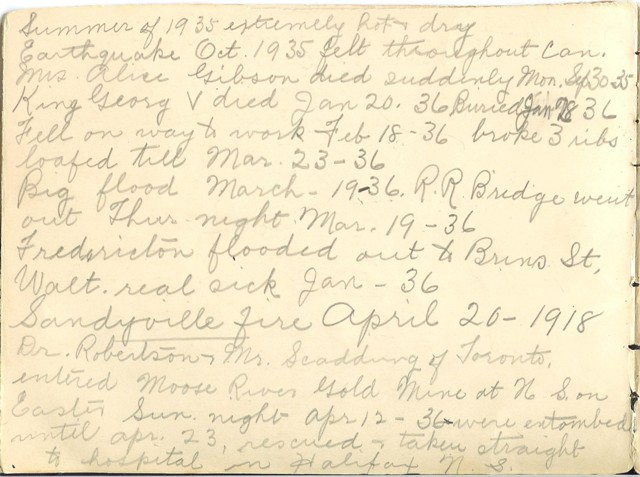 Summer of 1935 extremely hot & dry
Earthquake Oct. 1935 felt throughout Can.
Mrs. Alice Gibson died suddenly Mon. Sep 30 35
King Georg V died Jan 20. 36 Buried Jan 28 36
Fell on way to work Feb 18 - 36 broke 3 ribs
loafed till Mar. 23 - 36
Big flood March - 19 - 36. R.R Bridge went
out Thur. night Mar. 19 - 36
Fredericton flooded out to Bruns St,
Walt. real sick Jan - 36
Sandyville fire April 20 - 1918
Dr. Robertson & Mr. Scadding of Toronto,
entered Moose River Gold Mine at N S. on
Easter Sun. night apr 12 - 36 were entombed
until apr. 23, rescued & taken straight
to hospital in Halifax N. S.